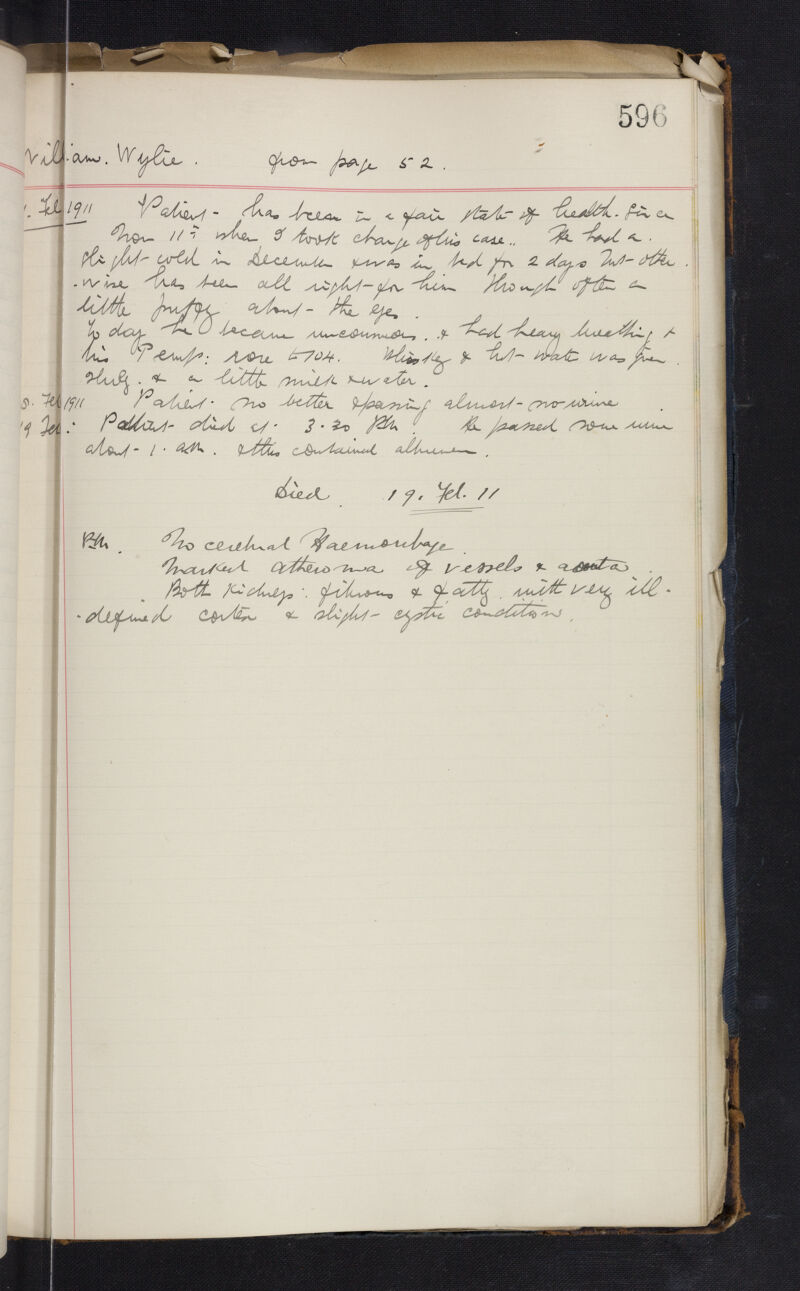 596
William. Wylie. from page 52.
Feb 1911 Patient has been in a fair state of health. Since
Nov 11th when I took charge of his case.. He had a
slight cold in December & was in bed for 2 days but other
-wise has been all right for him though often a
little puffy about the eyes.
To day he became unconscious. & had heavy breathing &
his Temp: rose to 104. Whisky & hot water was given
slowly. & a little milk & water.
Feb 1911 Patient no better & passing almost no urine.
19 Feb: Patient died at 3.30 PM. He passed some urine
about 1. am. & this contained albumen.
Died 19. Feb. 11
P.M. No cerebral Haemorrhage.
Marked atheroma of vessels & aorta.
Both Kidneys: fibrous & fatty. with very ill-
-defined cortex & slight cystic condition.